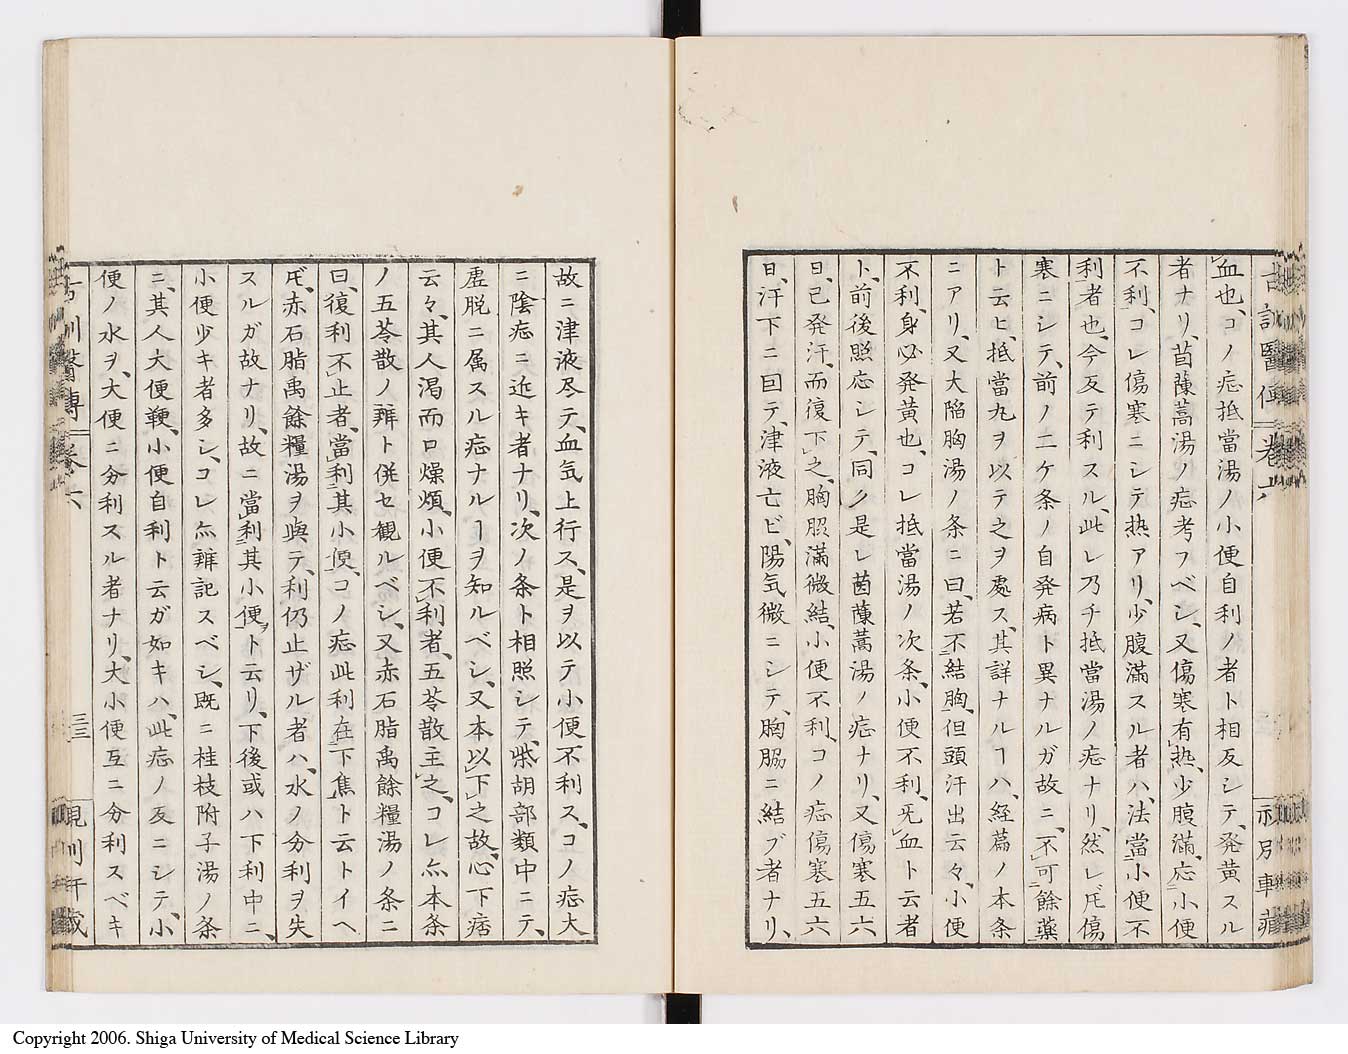 血也、コノ症抵當湯ノ小便自利ノ者ト相反シテ、発黄スル
者ナリ、茵蔯蒿湯ノ症考フベシ、又傷寒有熱、少腹滿、応小便
不利、コレ傷寒ニシテ熱アリ、少腹滿スル者ハ、法當小便不
利者也、今反テ利スル、此レ乃チ抵當湯ノ症ナリ、然レ𪜈傷
寒ニシテ、前ノ二ケ条ノ自発病ト異ナルガ故ニ、不可餘藥
ト云ヒ、抵當丸ヲ以テ之ヲ處ス、其詳ナルヿハ、経篇ノ本条
ニアリ、又大陥胸湯ノ条ニ曰、若不結胸、但頭汗出云々、小便
不利、身必発黄也、コレ抵當湯ノ次条、小便不利、旡血ト云者
ト、前後照応シテ、同ノ是レ茵蔯蒿湯ノ症ナリ、又傷寒五六
日、已発汗、而復下之、胸脇滿微結、小便不利、コノ症傷寒五六
日、汗下ニ因テ、津液亡ビ、陽気微ニシテ、胸脇ニ結ブ者ナリ、
故ニ津液尽テ、血気上行ス、是ヲ以テ小便不利ス、コノ症大
ニ陰症ニ近キ者ナリ、次ノ条ト相照シテ、柴胡部類中ニテ、
虚脱ニ属スル症ナルヿヲ知ルベシ、又本以下之故、心下痞
云々、其人渇而口燥煩、小便不利者、五苓散主之、コレ亦本条
ノ五苓散ノ辨ト併セ観ルベシ、又赤石脂禹餘糧湯ノ条ニ
曰、復利不止者、當利其小便、コノ症此利在下焦ト云トイヘ
𪜈、赤石脂禹餘糧湯ヲ與テ、利仍止ザル者ハ、水ノ分利ヲ失
スルガ故ナリ、故ニ當利其小便ト云リ、下後或ハ下利中ニ、
小便少キ者多シ、コレ亦辨記スベシ、既ニ桂枝附子湯ノ条
ニ、其人大便鞕、小便自利ト云ガ如キハ、此症ノ反ニシテ、小
便ノ水ヲ、大便ニ分利スル者ナリ、大小便互ニ分利スベキ
古訓醫傳 卷六 三三
Copyright 2006. Shiga University of Medical Science Library